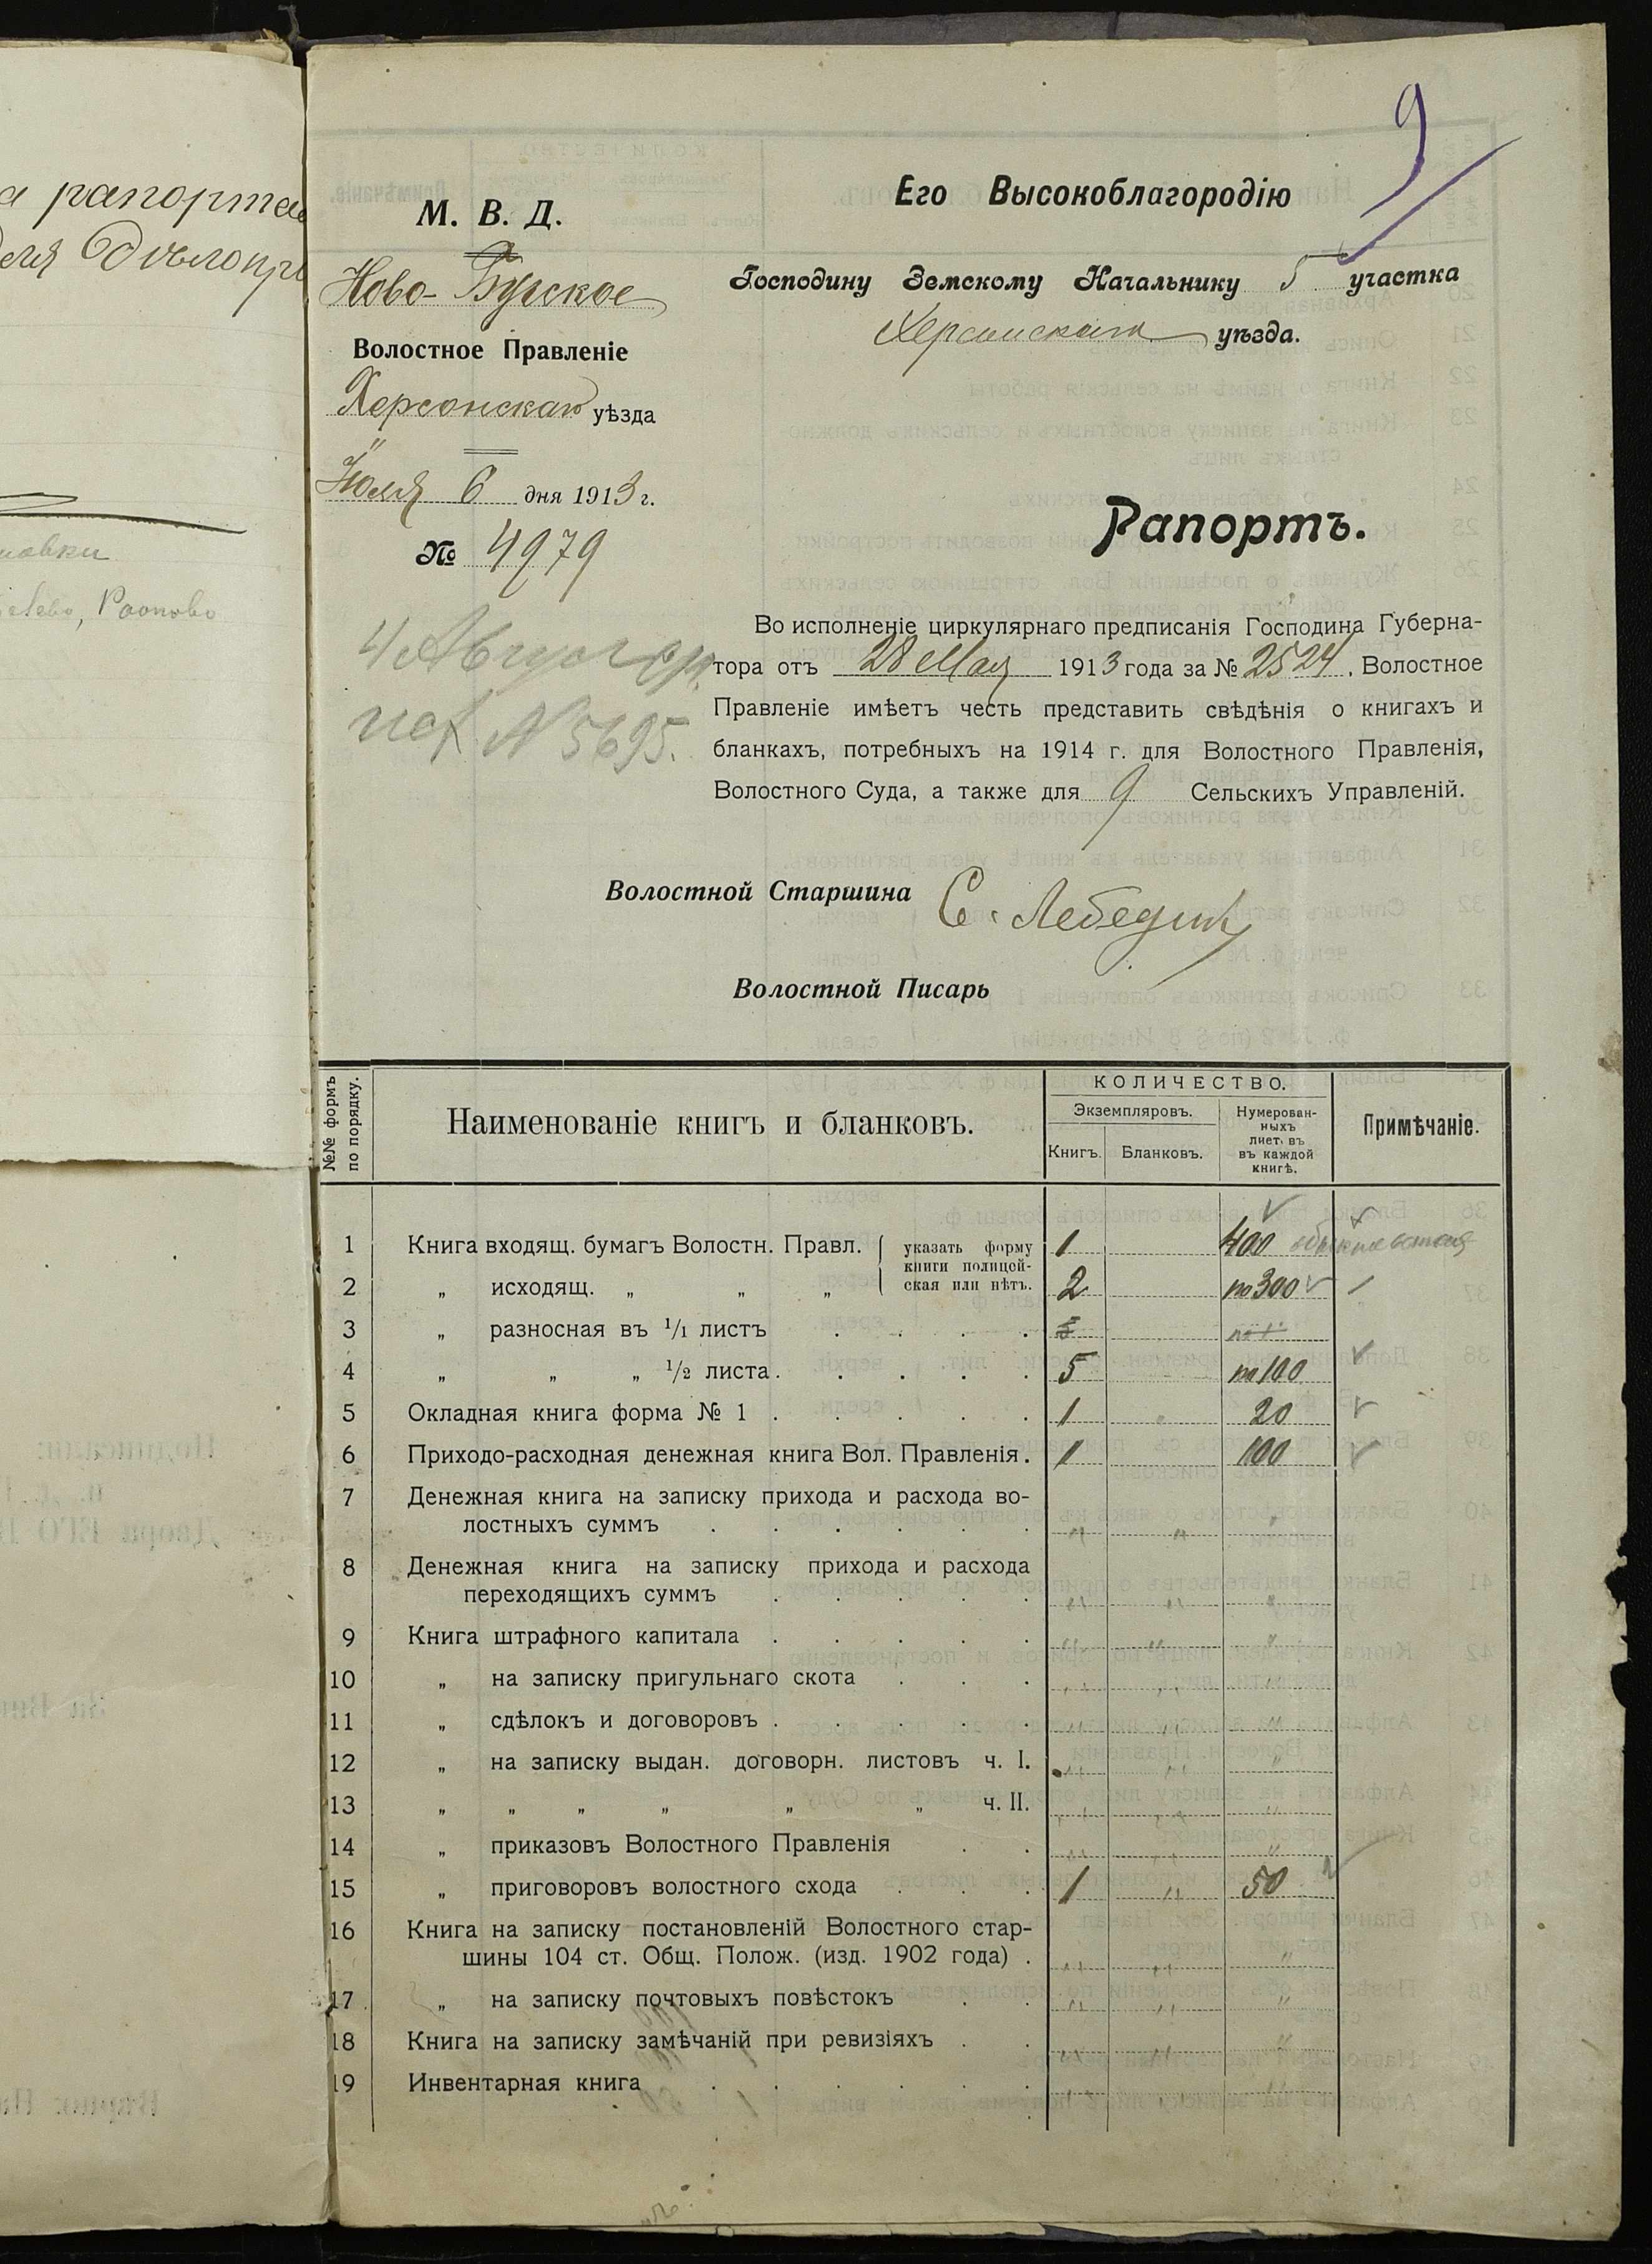 а рапорта
9
М. В. Д.
Ново-Бугское
Волостное Правленіе
Херсонскаго уѣзда
Іюля 6 дня 1913 г.
№ 4979
4 Августа
исх. № 5695.
Его Высокоблагородію
Господину Земскому Начальнику 5 участка
Херсонскаго уѣзда.
Рапортъ.
Во исполненіе циркулярнаго предписанія Господина Губерна-
тора отъ 28 Мая 1913 года за № 2524. Волостное
Правленіе имѣетъ честь представить свѣдѣнія о книгахъ и
бланкахъ, потребныхъ на 1914 г. для Волостного Правленія,
Волостного Суда, а также для 9 Сельскихъ Управленій.
Волостной Старшина С. Лебедин
Волостной Писарь
№№ формъ по порядку.
Наименованіе книгъ и бланковъ.
КОЛИЧЕСТВО.
Экземпляровъ.
Книгъ.
Бланковъ.
Нумерован-
ныхъ
лист. въ
въ каждой
книгѣ.
Примѣчаніе.
1 Книга входящ. бумагъ Волостн. Правл. { указать форму 1 400
книги полицей-
2 „ исходящ. „ „ „ ская или нѣтъ. 2 по 300
3 „ разносная въ 1/1 листъ
4 „ „ „ 1/2 листа. 5 по 100
5 Окладная книга форма № 1 1 „ 20
6 Приходо-расходная денежная книга Вол. Правленія. 1 100
7 Денежная книга на записку прихода и расхода во-
лостныхъ суммъ „ „ „
8 Денежная книга на записку прихода и расхода
переходящихъ суммъ „ „ „
9 Книга штрафного капитала „ „ „
10 „ на записку пригульнаго скота „ „ „
11 „ сдѣлокъ и договоровъ „ „ „
12 „ на записку выдан. договорн. листовъ ч. I. „ „ „
13 „ „ „ „ „ „ ч. II. „ „ „
14 „ приказовъ Волостного Правленія „ „ „
15 „ приговоровъ волостного схода 1 „ 50
16 Книга на записку постановленій Волостного стар-
шины 104 ст. Общ. Полож. (изд. 1902 года) „ „ „
17 „ на записку почтовыхъ повѣстокъ „ „ „
18 Книга на записку замѣчаній при ревизіяхъ „ „ „
19 Инвентарная книга „ „ „